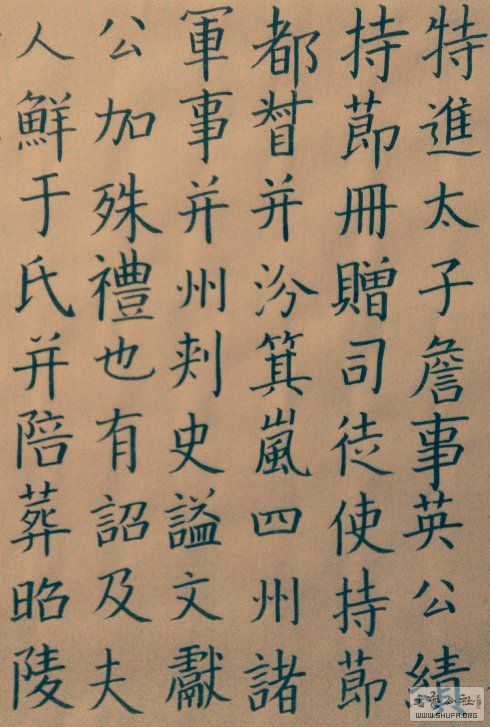 特進太子詹事英公績
持節冊贈司徒使持節
都督并汾箕嵐四州諸
軍事并州刺史謚文獻
公加殊禮也有詔及夫
人鮮于氏并陪葬昭陵
書藝公社
WWW.SHUFA.ORG